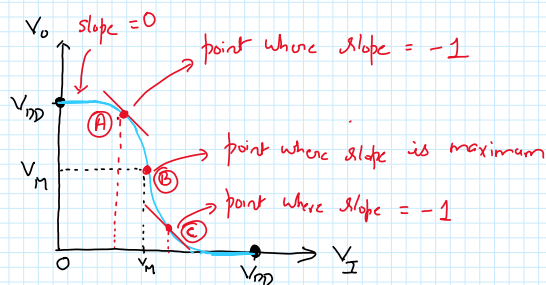 V₀
slope = 0
point where slope = -1
V_DD
A
point where slope is maximum
V_M
B
point where slope = -1
C
0
V_M
V_DD
V_I